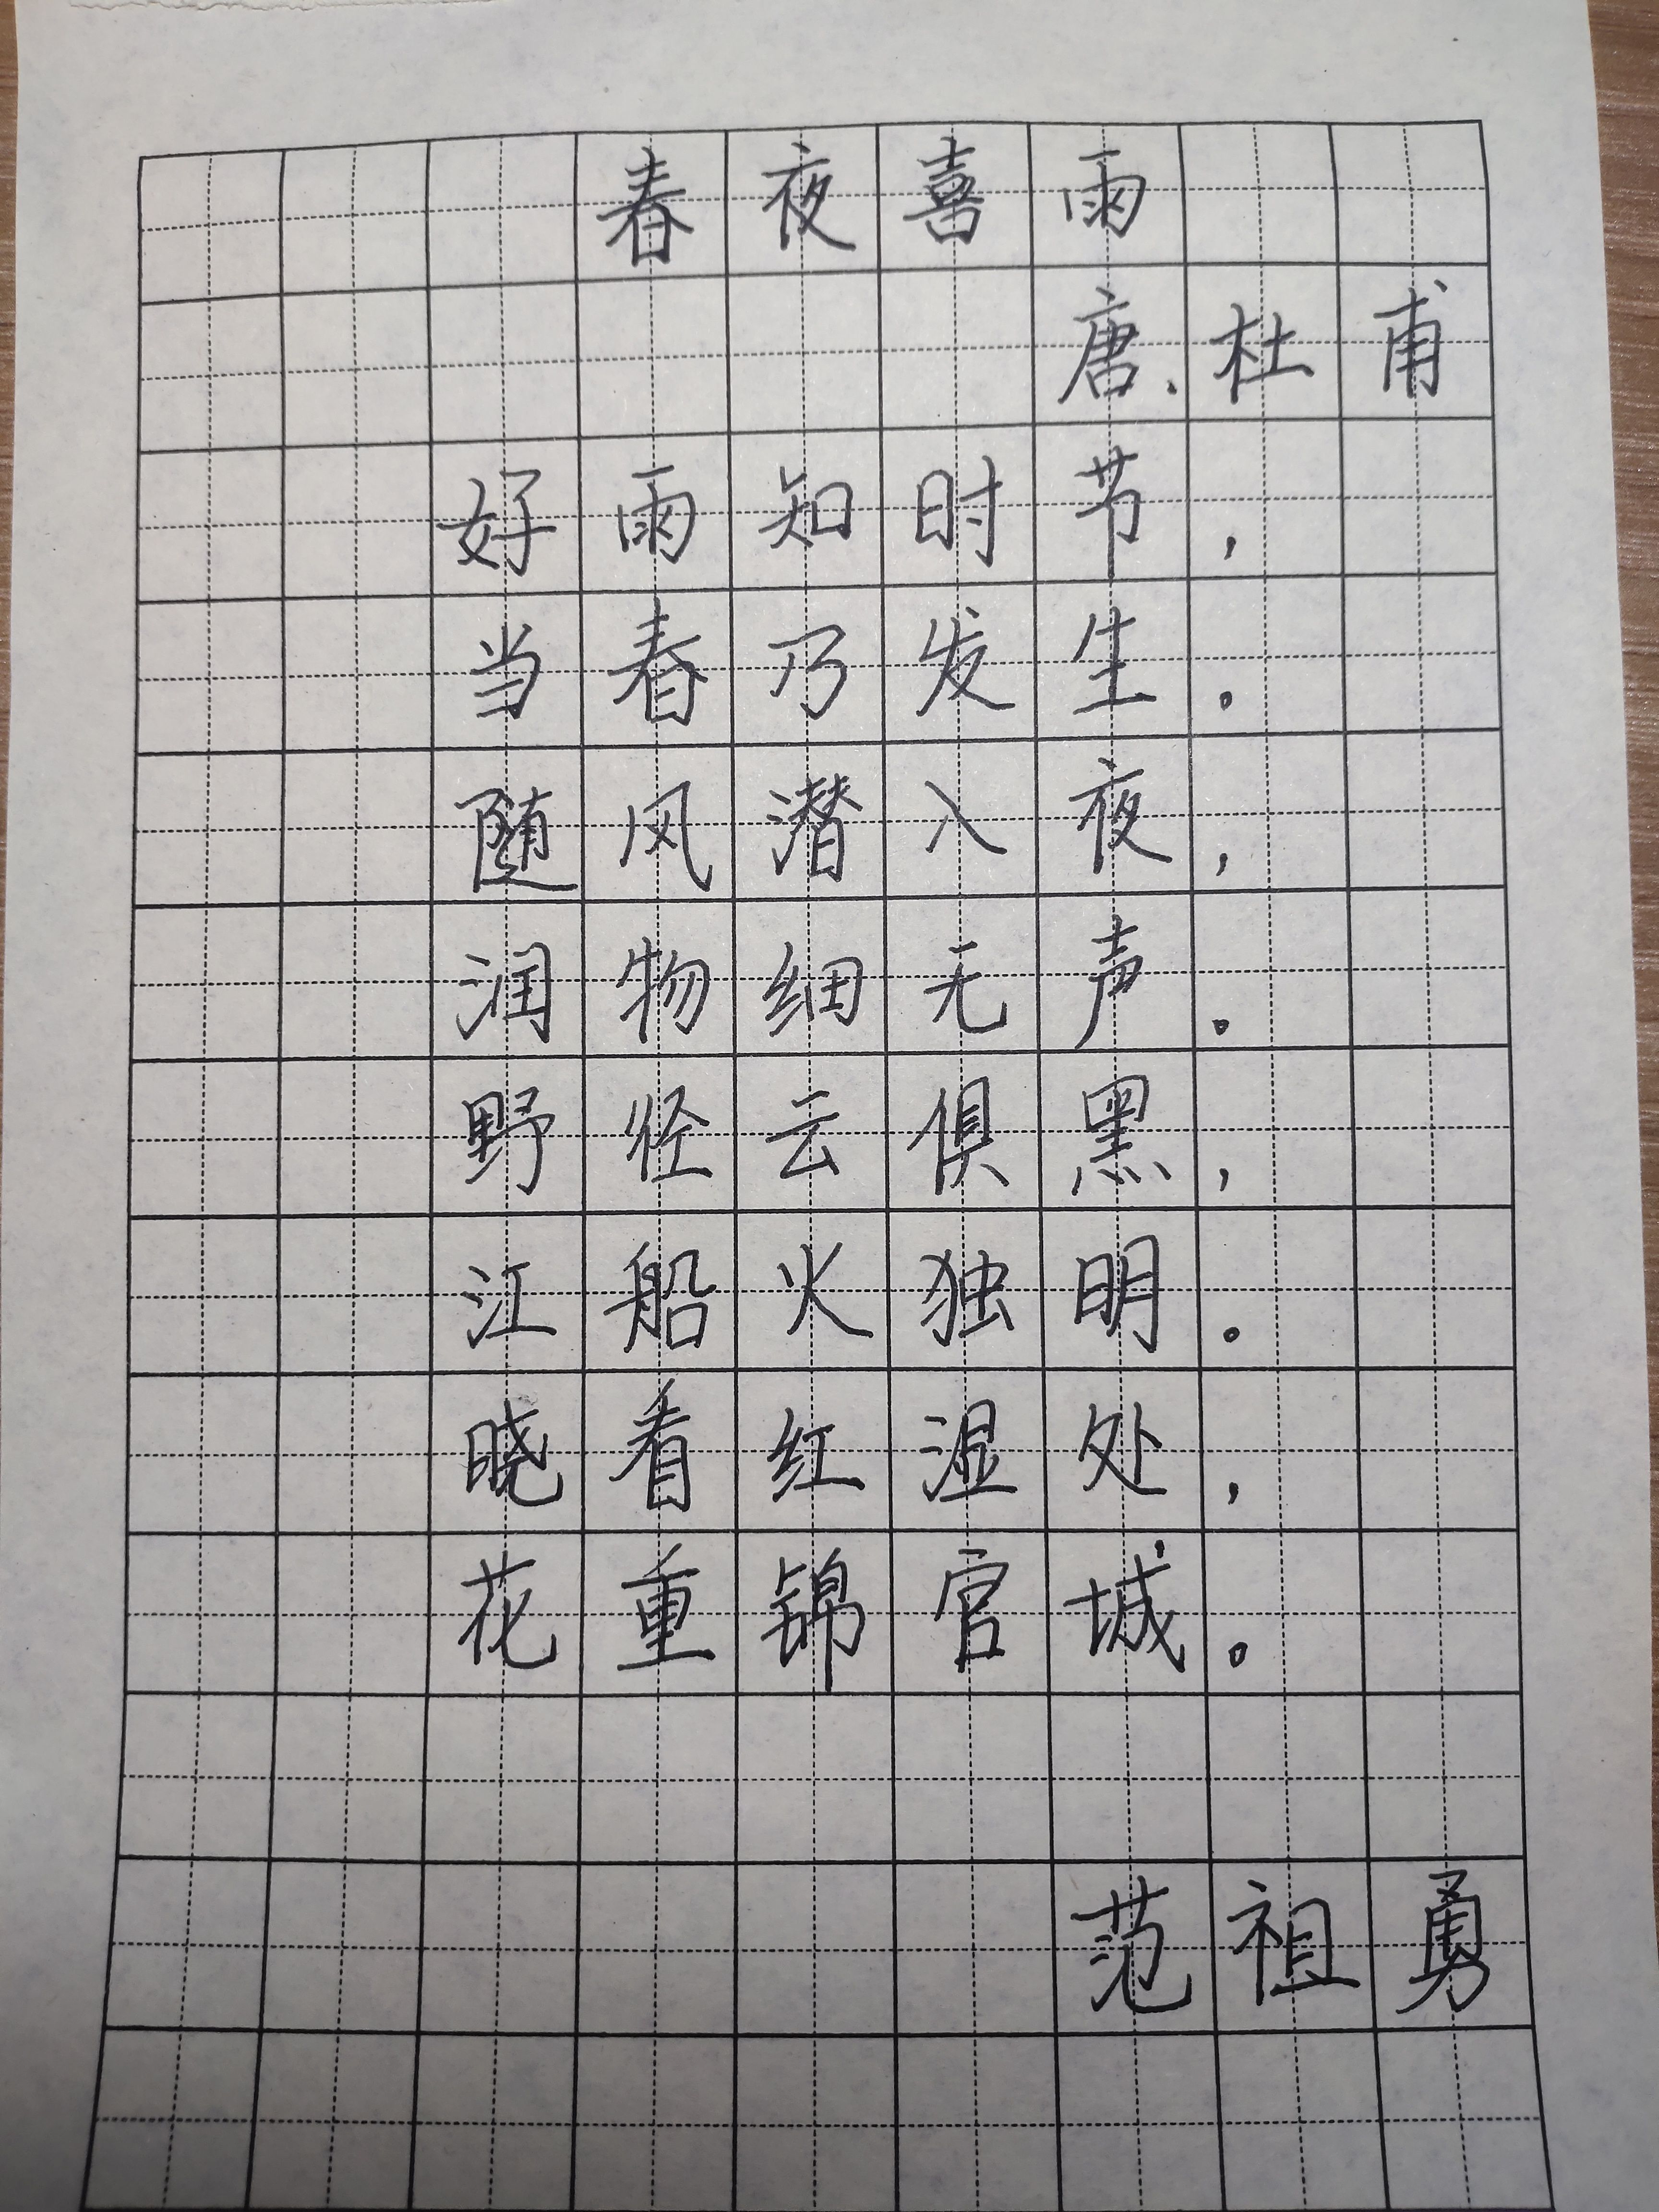 春夜喜雨
唐、杜甫
好雨知时节，
当春乃发生。
随风潜入夜，
润物细无声。
野径云俱黑，
江船火独明。
晓看红湿处，
花重锦官城。
范祖勇